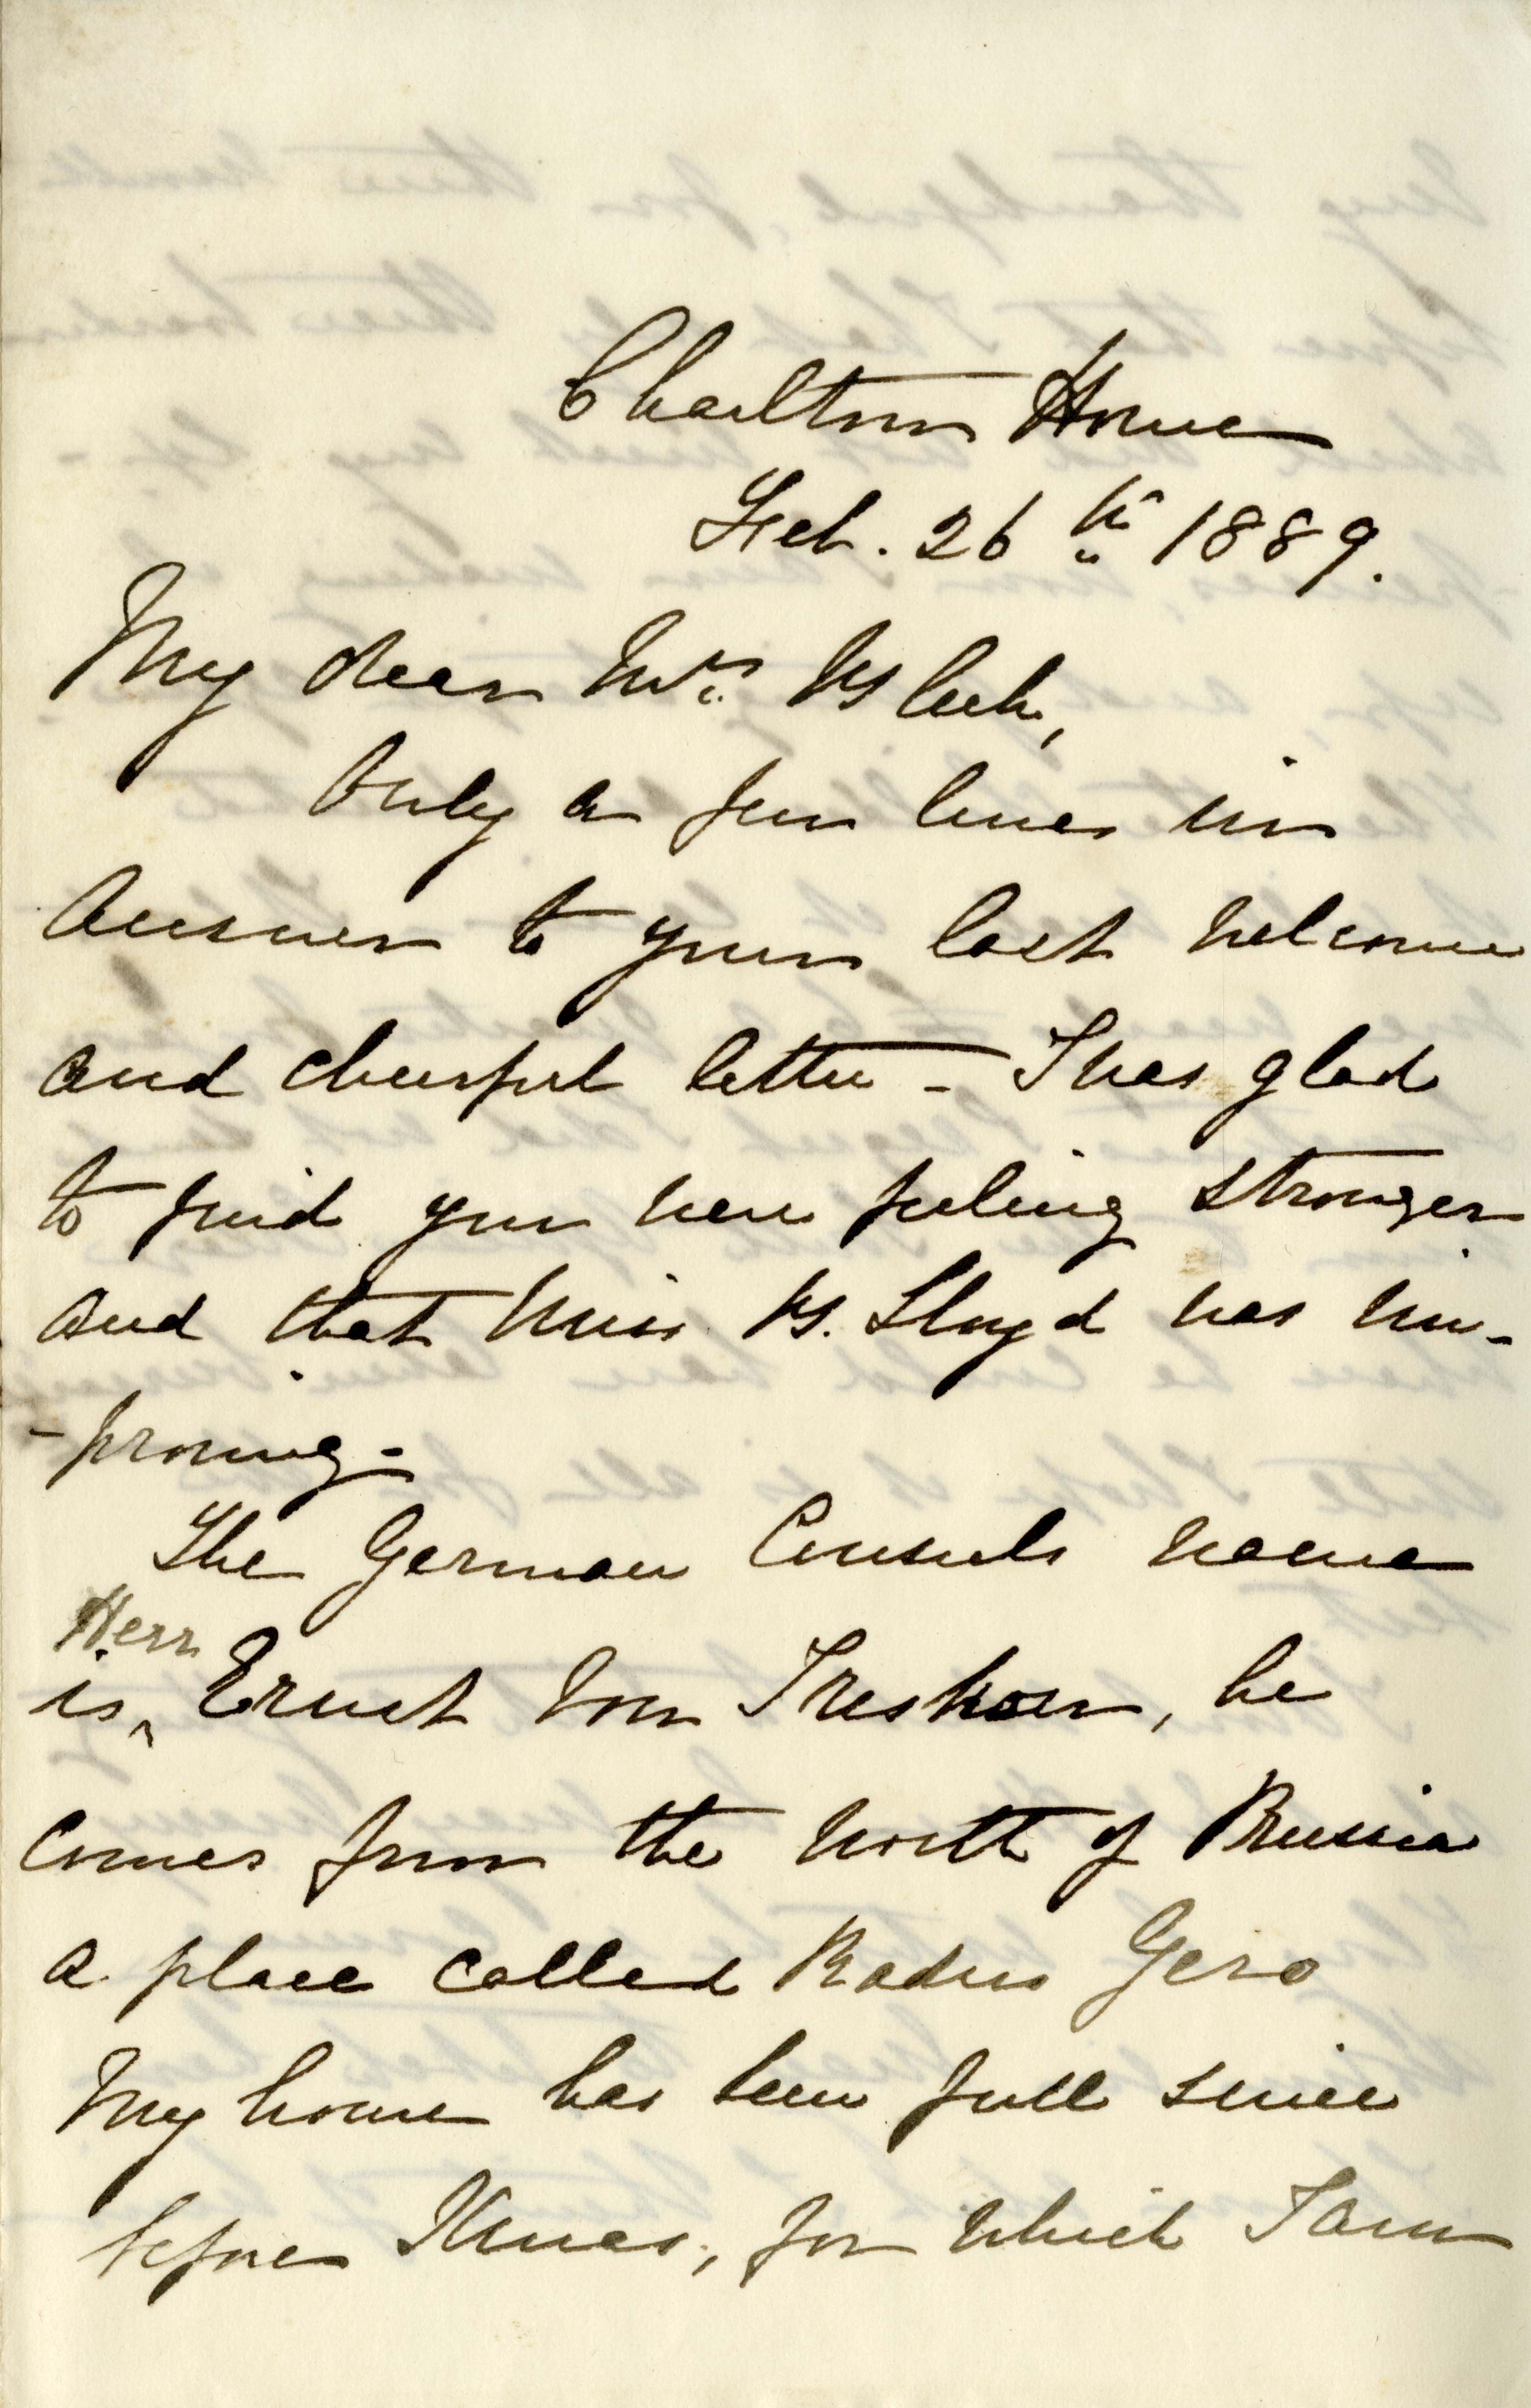 Charlton House
Feb. 26th 1889.
My dear Mrs. Bleek,
Only a few lines in
answer to your last welcome
and cheerful letter - I was glad
to find you were feeling stronger
and that Miss B. Lloyd was im-
-proving -
The German Consuls name
Herr
is ^ Ernst von Treskow, he
comes from the north of Prussia
a place called Radus Gero
My house has been full since
before Xmas, for which I am